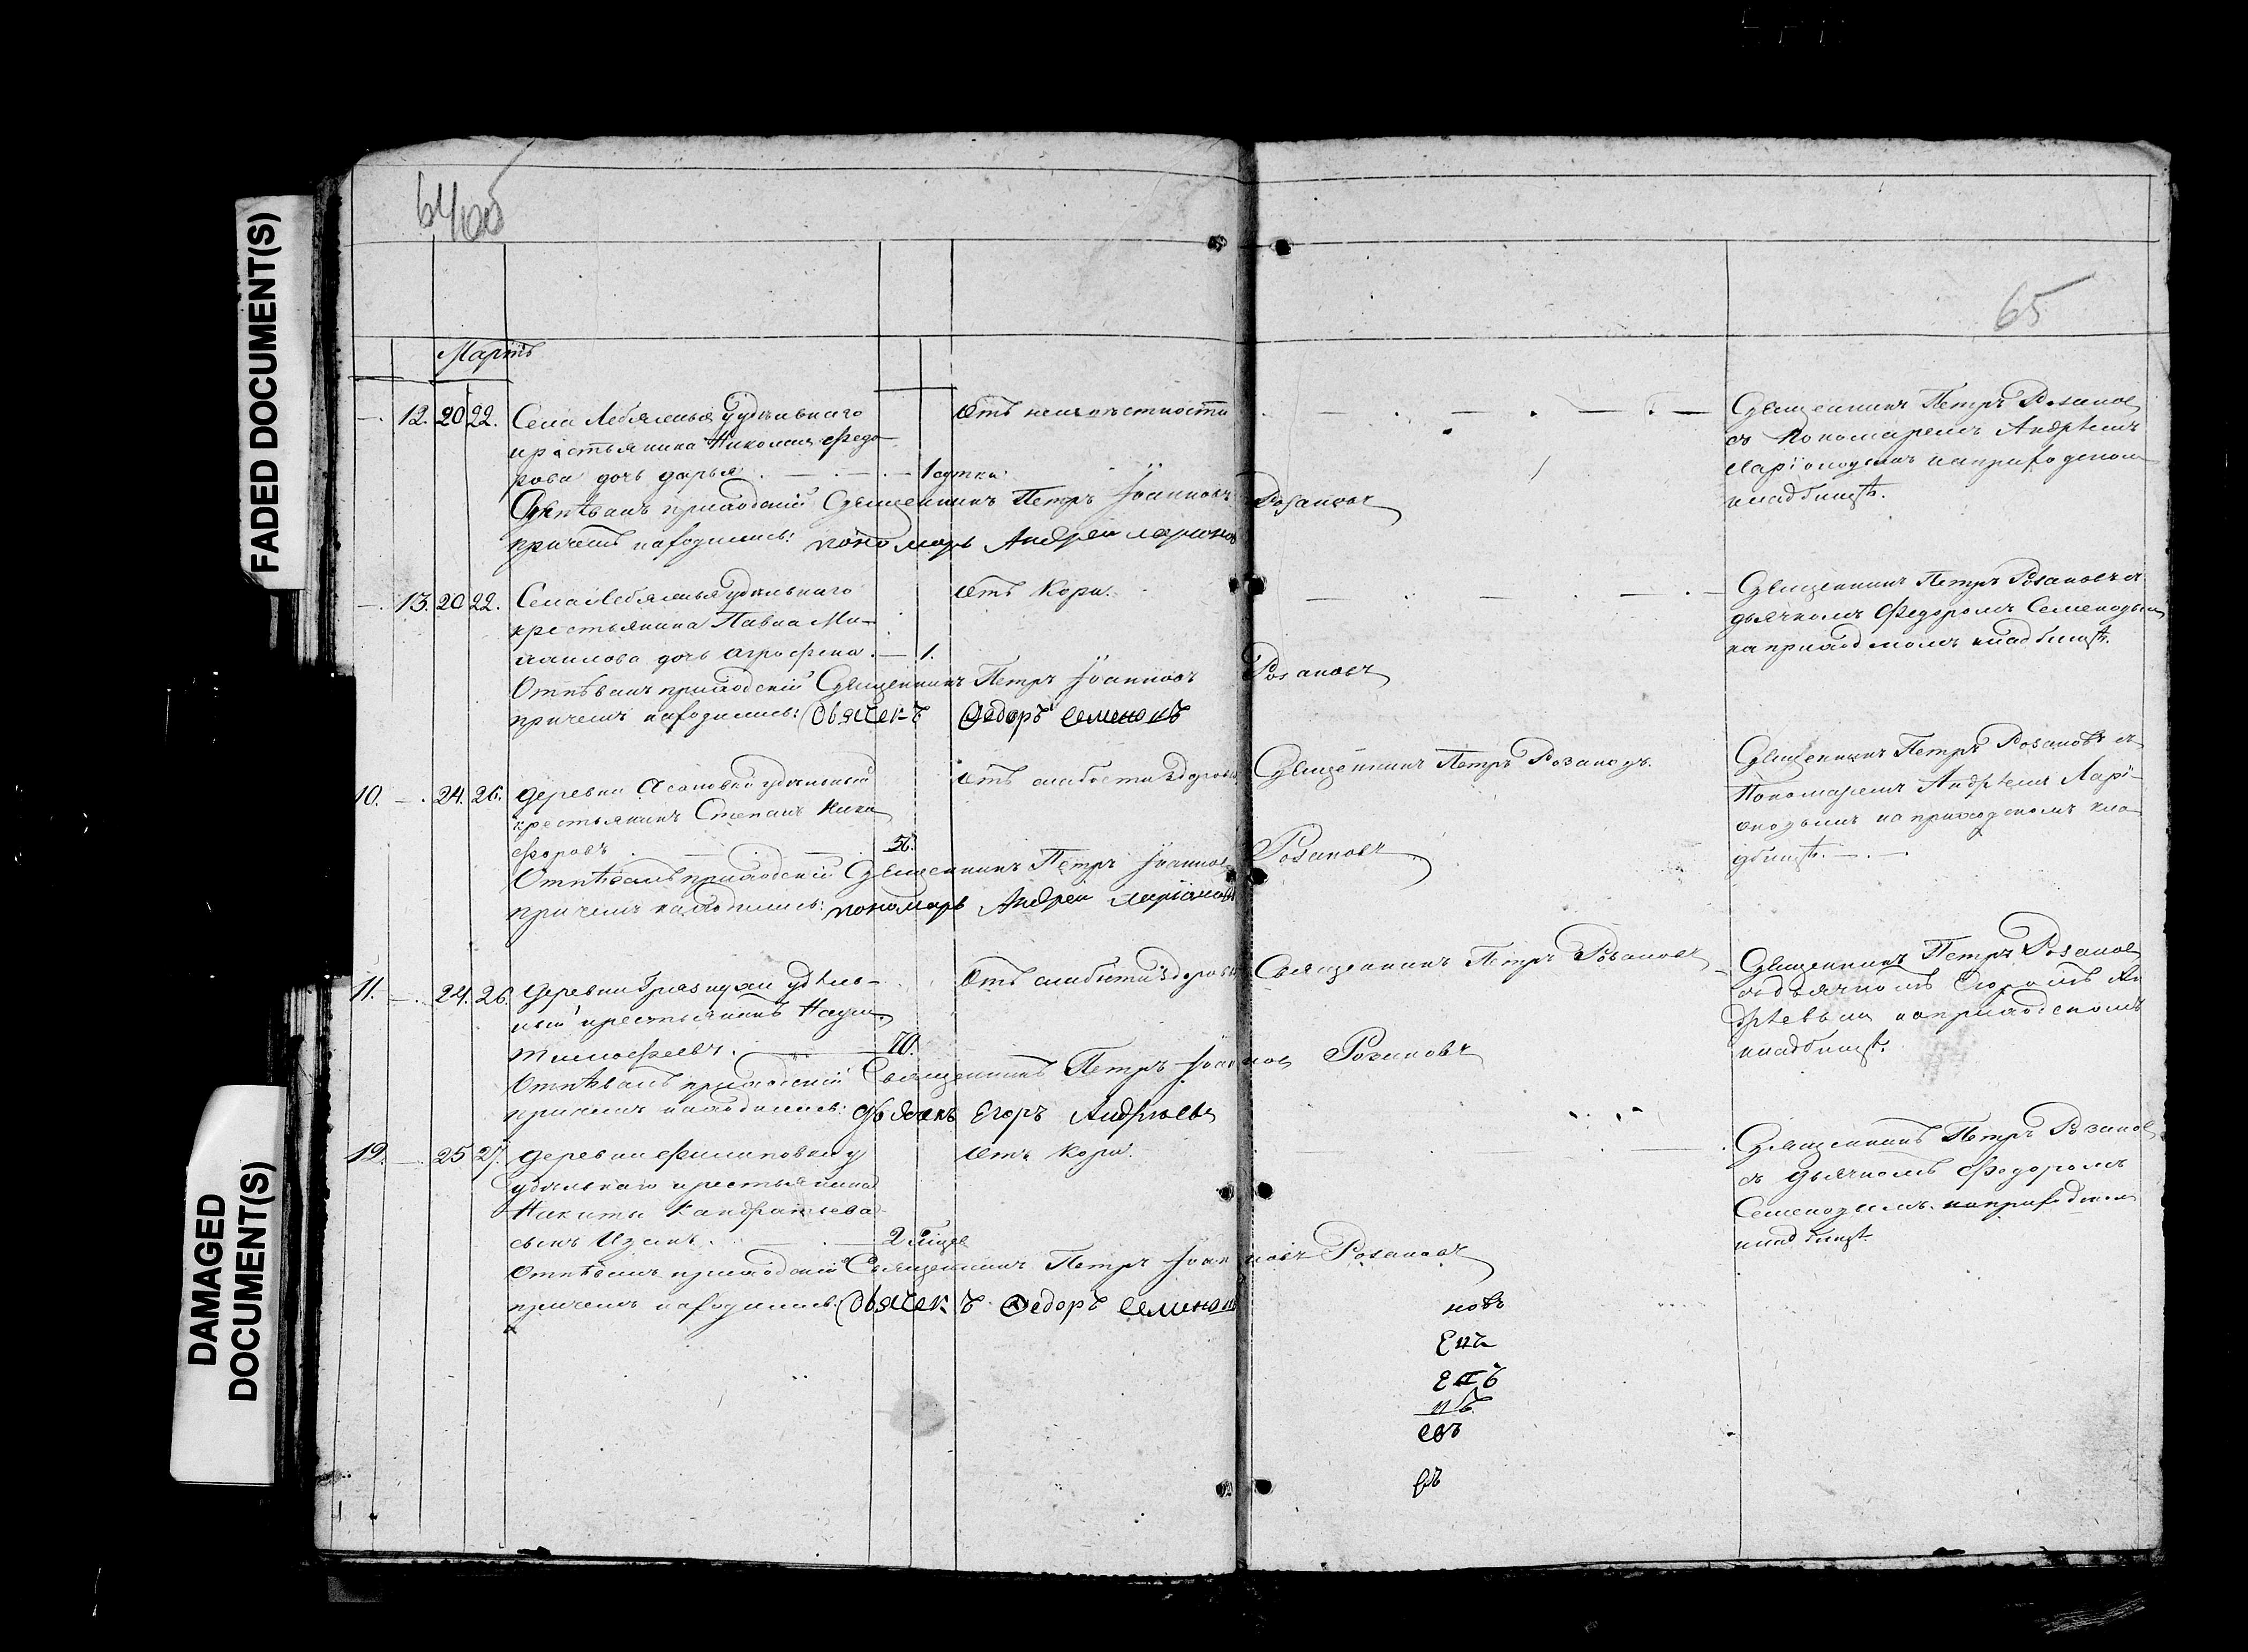 FADED DOCUMENT(S)
DAMAGED
DOCUMENT(S)
65
Мартъ
12. 20 22. Села Лебяжья удѣльнаго
крестьянина Николая Федо-
рова дочь дарья 1
Отпѣвалъ приходскій Священникъ Петръ Іоанновъ Розановъ
причемъ находились: пономарь Андрей
Священникъ Петръ Розановъ
съ Пономаремъ Андрѣемъ
Ларіоновымъ на приходскомъ
кладбищѣ.
13. 20 22. Села Лебяжья удѣльнаго
крестьянина Павла Ми-
хаилова дочь Агрофена 1.
Отъ Кори.
Отпѣвалъ приходскій Священникъ Петръ Іоанновъ Розановъ
причемъ находились: Дьячекъ Ѳедоръ Семеновъ
Священникъ Петръ Розановъ съ
дьячкомъ Федоромъ Семеновымъ
на приходскомъ кладбищѣ.
10. 24. 26. деревни Асановки удѣльный
крестьянинъ Степанъ Ники
форовъ
Отъ слабости здоровья Священникъ Петръ Розановъ.
Отпѣвалъ приходскій Священникъ Петръ Іоанновъ Розановъ
причемъ находились: пономарь Андрей Ларіоновъ
Священникъ Петръ Розановъ съ
Пономаремъ Андрѣемъ Ларі-
оновымъ на приходскомъ кла-
дбищѣ.
11. 24. 26. деревни удѣль-
ный крестьянинъ Наумъ
тимофеевъ. 70.
Отъ слабости здоровья Священникъ Петръ Розановъ
Отпѣвалъ приходскій Священникъ Петръ Іоанновъ Розановъ
причемъ находились: дьячекъ Егоръ Андрѣевъ
Священникъ Петръ Розановъ
съ дьячкомъ Егоромъ Ан
дрѣевымъ на приходскомъ
кладбищѣ.
12. 25 27. деревни Филиповки
удѣльнаго крестьянина
Никиты Кандратьева
сынъ 2
Отъ Кори.
Отпѣвалъ приходскій Священникъ Петръ Іоанновъ Розановъ
причемъ находились: Дьячекъ Ѳедоръ Семеновъ
Священникъ Петръ Розановъ
съ дьячкомъ Федоромъ
Семеновымъ на приходскомъ
кладбищѣ.
новъ
евъ